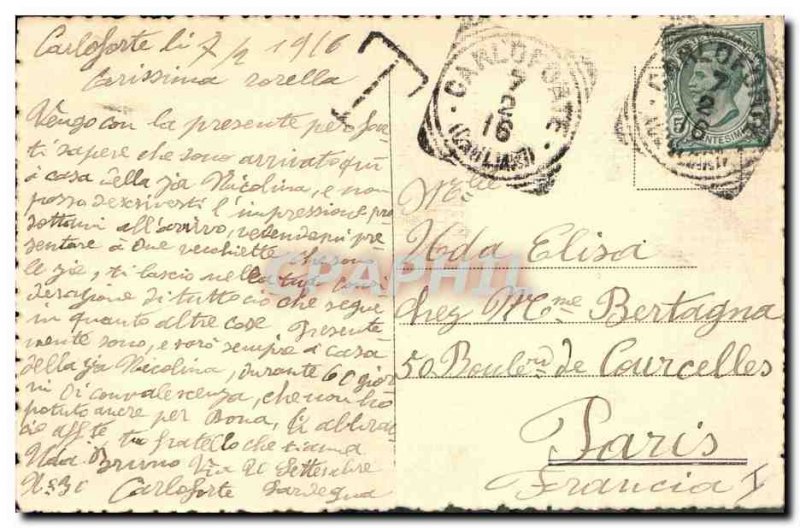 Carloforte li 7/2 1916
Carissima sorella
Vengo con la presente per far
ti sapere che sono arrivato qui
a casa della zia Nicolina, e non
posso descriverti l'impressione pro
dottami all'arrivo, vedendomi pre
sentare a due vecchiette che sono
le zie, ti lascio nella tua consi
derazione di tutto ciò che segue
in quanto altre cose. Presente
mente sono, e sarò sempre a casa
della zia Nicolina, durante 60 gior
ni di convalescenza, che non ho
potuto avere per Bona, ti abbrac
cio affte tuo fratello che ti ama
Uda Bruno Via 20 Settembre
N. 30 Carloforte Sardegna
T
CARLOFORTE
7
2
16
(CAGLIARI)
CARLOFORTE
7
2
16
CENTESIMI
Mlle
Uda Elisa
chez Mme Bertagna
50 Boulerd de Courcelles
Paris
Francia
CPAPHIL